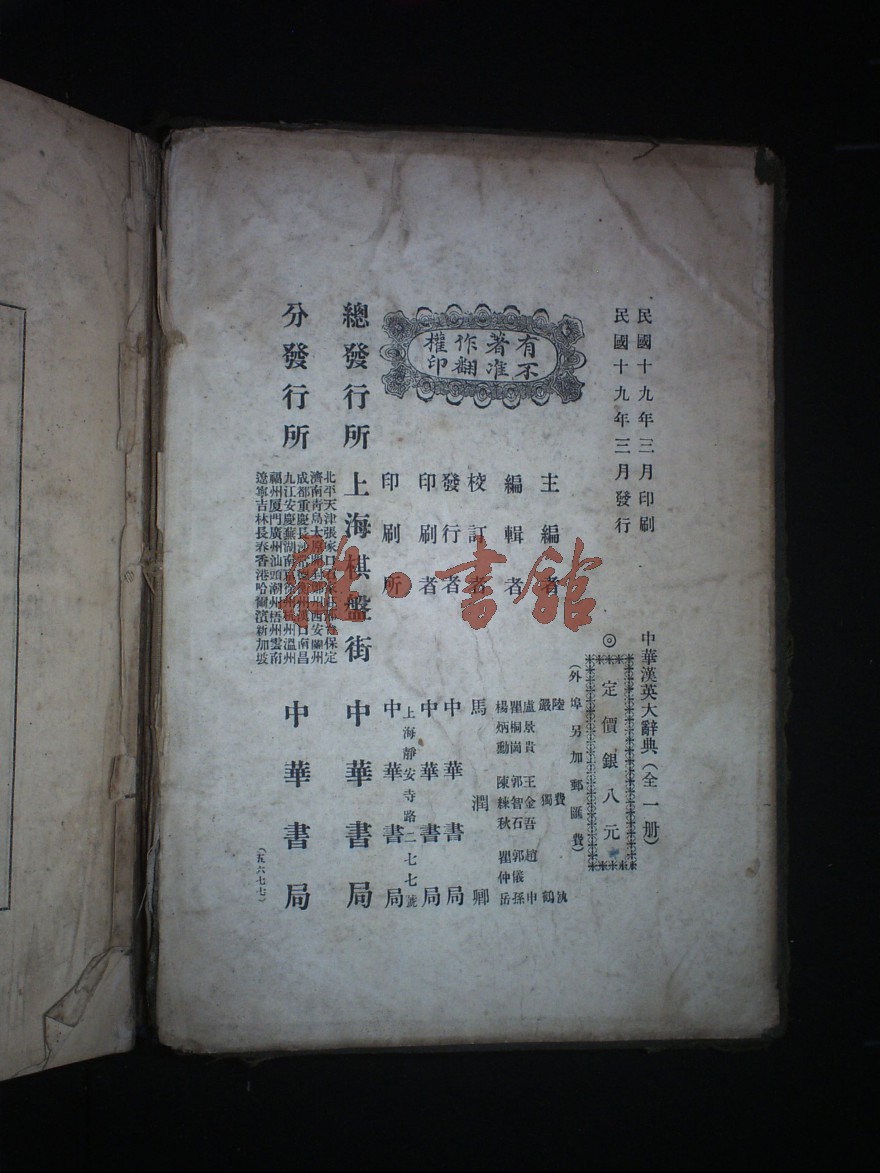 民國十九年三月印刷
民國十九年三月發行
中華漢英大辭典（全一册）
◎定價銀八元
（外埠另加郵匯費）
有著作權
不准翻印
主編者 陸費執 嚴獨鶴
編輯者
盧景貴 王金吾 趙申
瞿桐崗 郭智石 郭儀孫
楊炳勳 陳練秋 瞿仲岳
校訂者 馬潤卿
發行者 中華書局
印刷者 中華書局
上海靜安寺路二七七號
印刷所 中華書局
總發行所 上海棋盤街 中華書局
分發行所
北平天津張家口 保定
濟南青島太原 蘭州
成都重慶長沙 漢口南昌
九江安慶蕪湖南京 杭州溫州
福州厦門廣州汕頭潮州梧州雲南
遼寧吉林長春香港哈爾濱新加坡
中華書局
（五六七七）
雜·書館